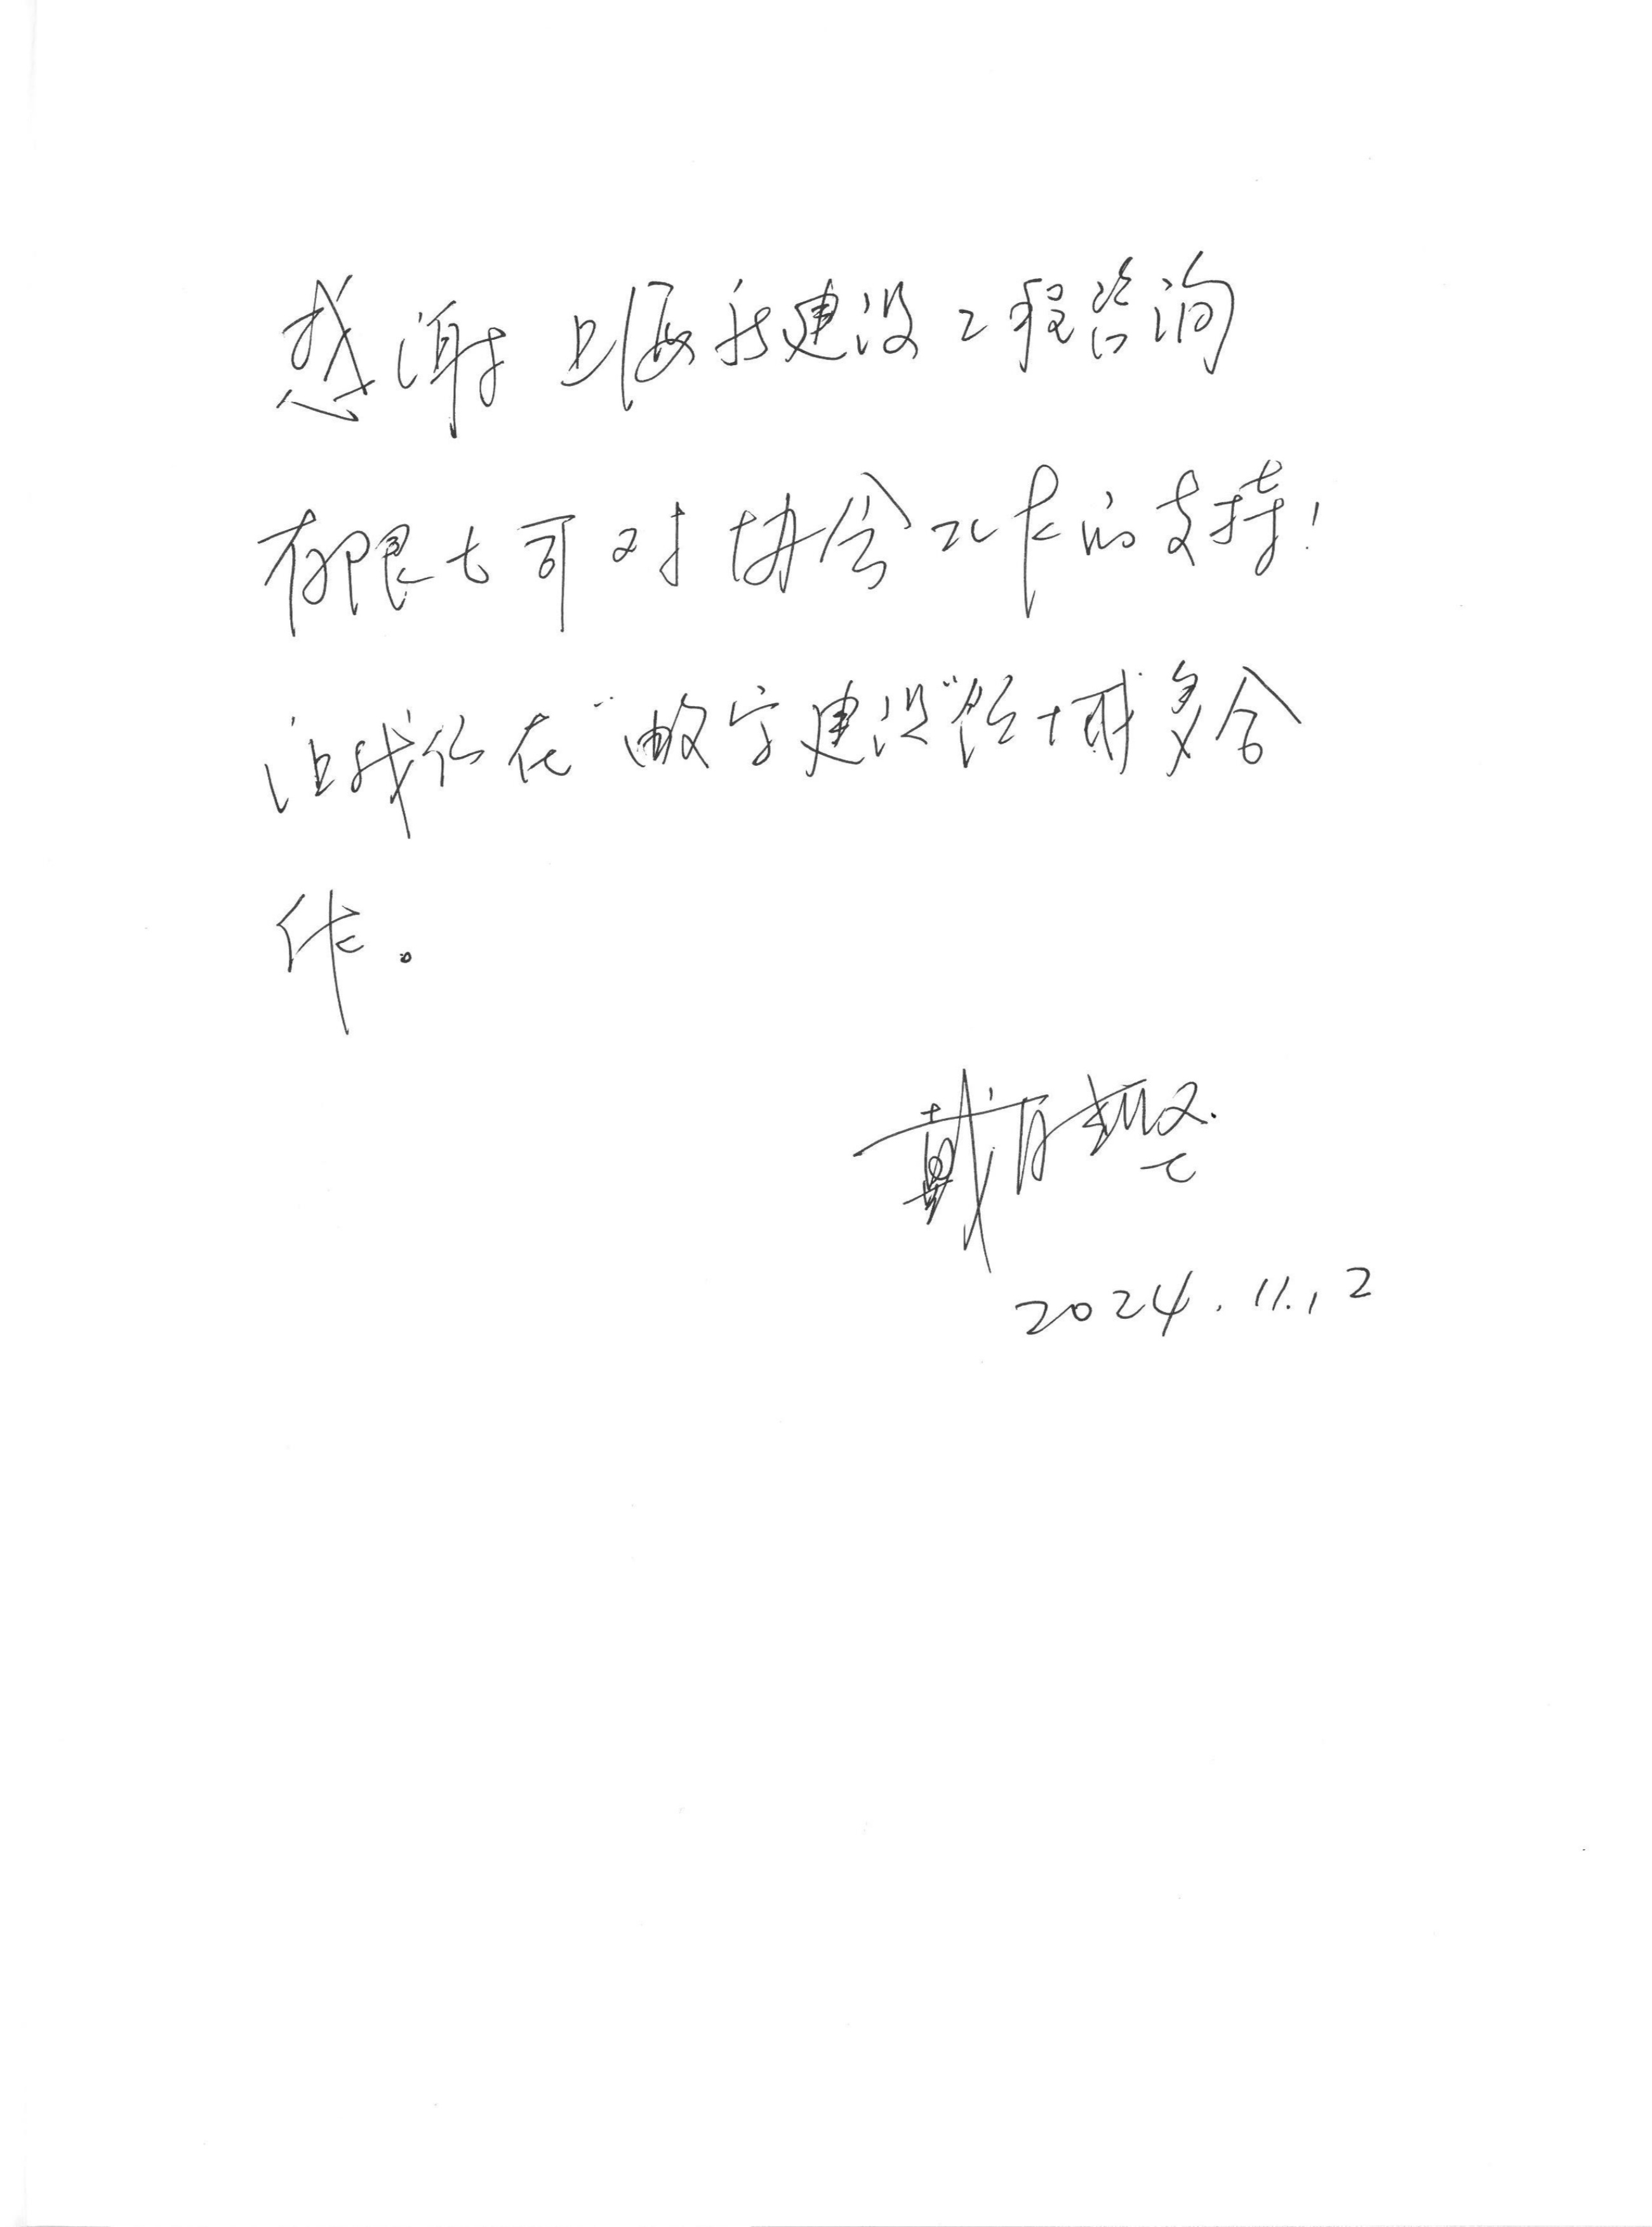 感谢上海新建设工程咨询
有限公司对协会工作的支持！
让我们在“数字建设”领域多合
作。
戴
2024.11.12